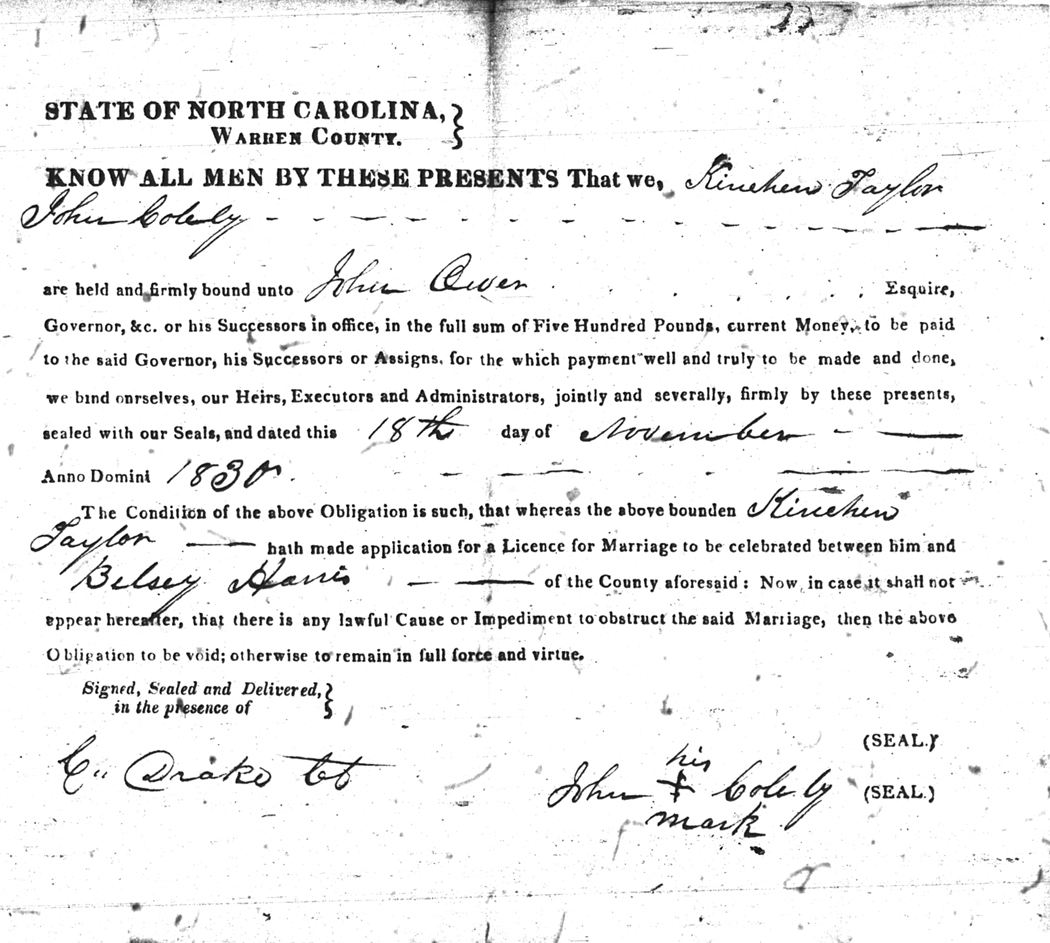 STATE OF NORTH CAROLINA,
WARREN COUNTY.
KNOW ALL MEN BY THESE PRESENTS That we, Kinchen Taylor
John Colely
are held and firmly bound unto John Owen Esquire,
Governor, &c. or his Successors in office, in the full sum of Five Hundred Pounds, current Money, to be paid
to the said Governor, his Successors or Assigns, for the which payment well and truly to be made and done,
we bind onrselves, our Heirs, Executors and Administrators, jointly and severally, firmly by these presents,
sealed with our Seals, and dated this 18th day of November
Anno Domini 1830.
The Condition of the above Obligation is such, that whereas the above bounden Kinchen
Taylor hath made application for a Licence for Marriage to be celebrated between him and
Betsey Harris of the County aforesaid: Now, in case it shall not
appear hereafter, that there is any lawful Cause or Impediment to obstruct the said Marriage, then the above
Obligation to be void; otherwise to remain in full force and virtue.
Signed, Sealed and Delivered,
in the presence of
(SEAL.)
C. Drake
his
John Colely (SEAL.)
mark